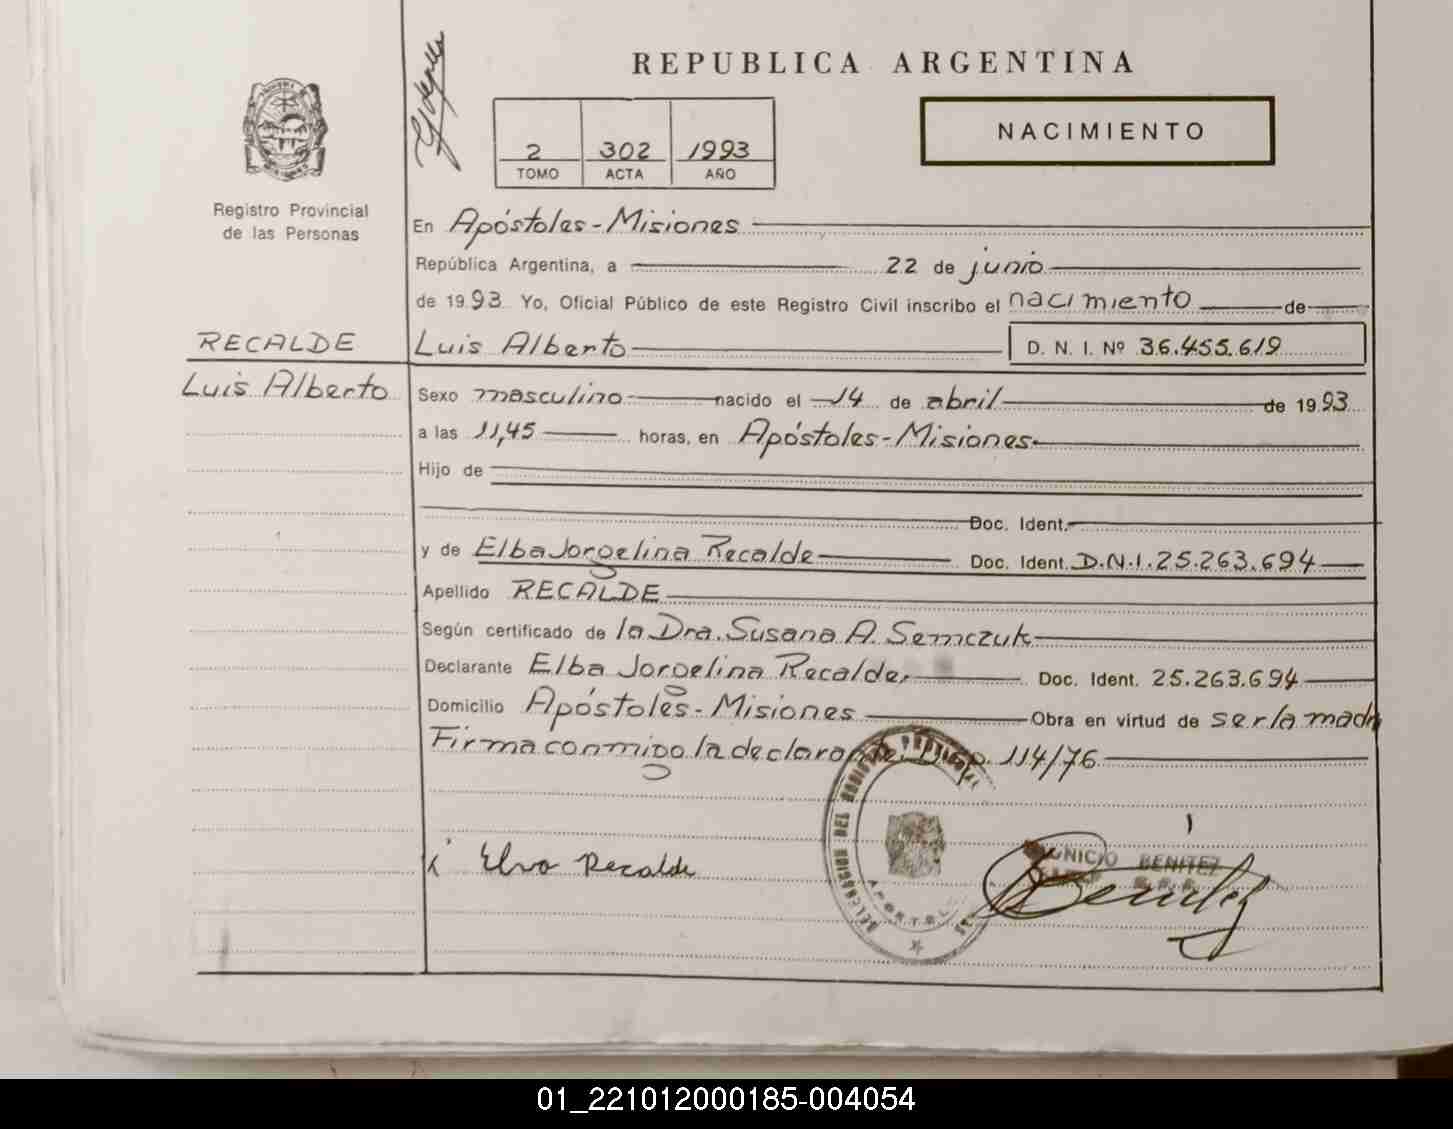 REPUBLICA ARGENTINA
NACIMIENTO
2 302 1993
TOMO ACTA AÑO
Registro Provincial
de las Personas
En Apóstoles - Misiones
República Argentina, a 22 de junio
de 1993 Yo, Oficial Público de este Registro Civil inscribo el nacimiento de
RECALDE
Luis Alberto D. N. I. Nº 36.455.619
Luis Alberto
Sexo masculino nacido el 14 de abril de 1993
a las 11,45 horas, en Apóstoles - Misiones
Hijo de
Doc. Ident.
y de Elba Jorgelina Recalde Doc. Ident. D.N.I. 25.263.694
Apellido RECALDE
Según certificado de la Dra. Susana A. Semczuk
Declarante Elba Jorgelina Recalde. Doc. Ident. 25.263.694
Domicilio Apóstoles - Misiones Obra en virtud de ser la madre
Firma conmigo la declarante. 114/76
Recalde
BENITEZ
01_221012000185-004054